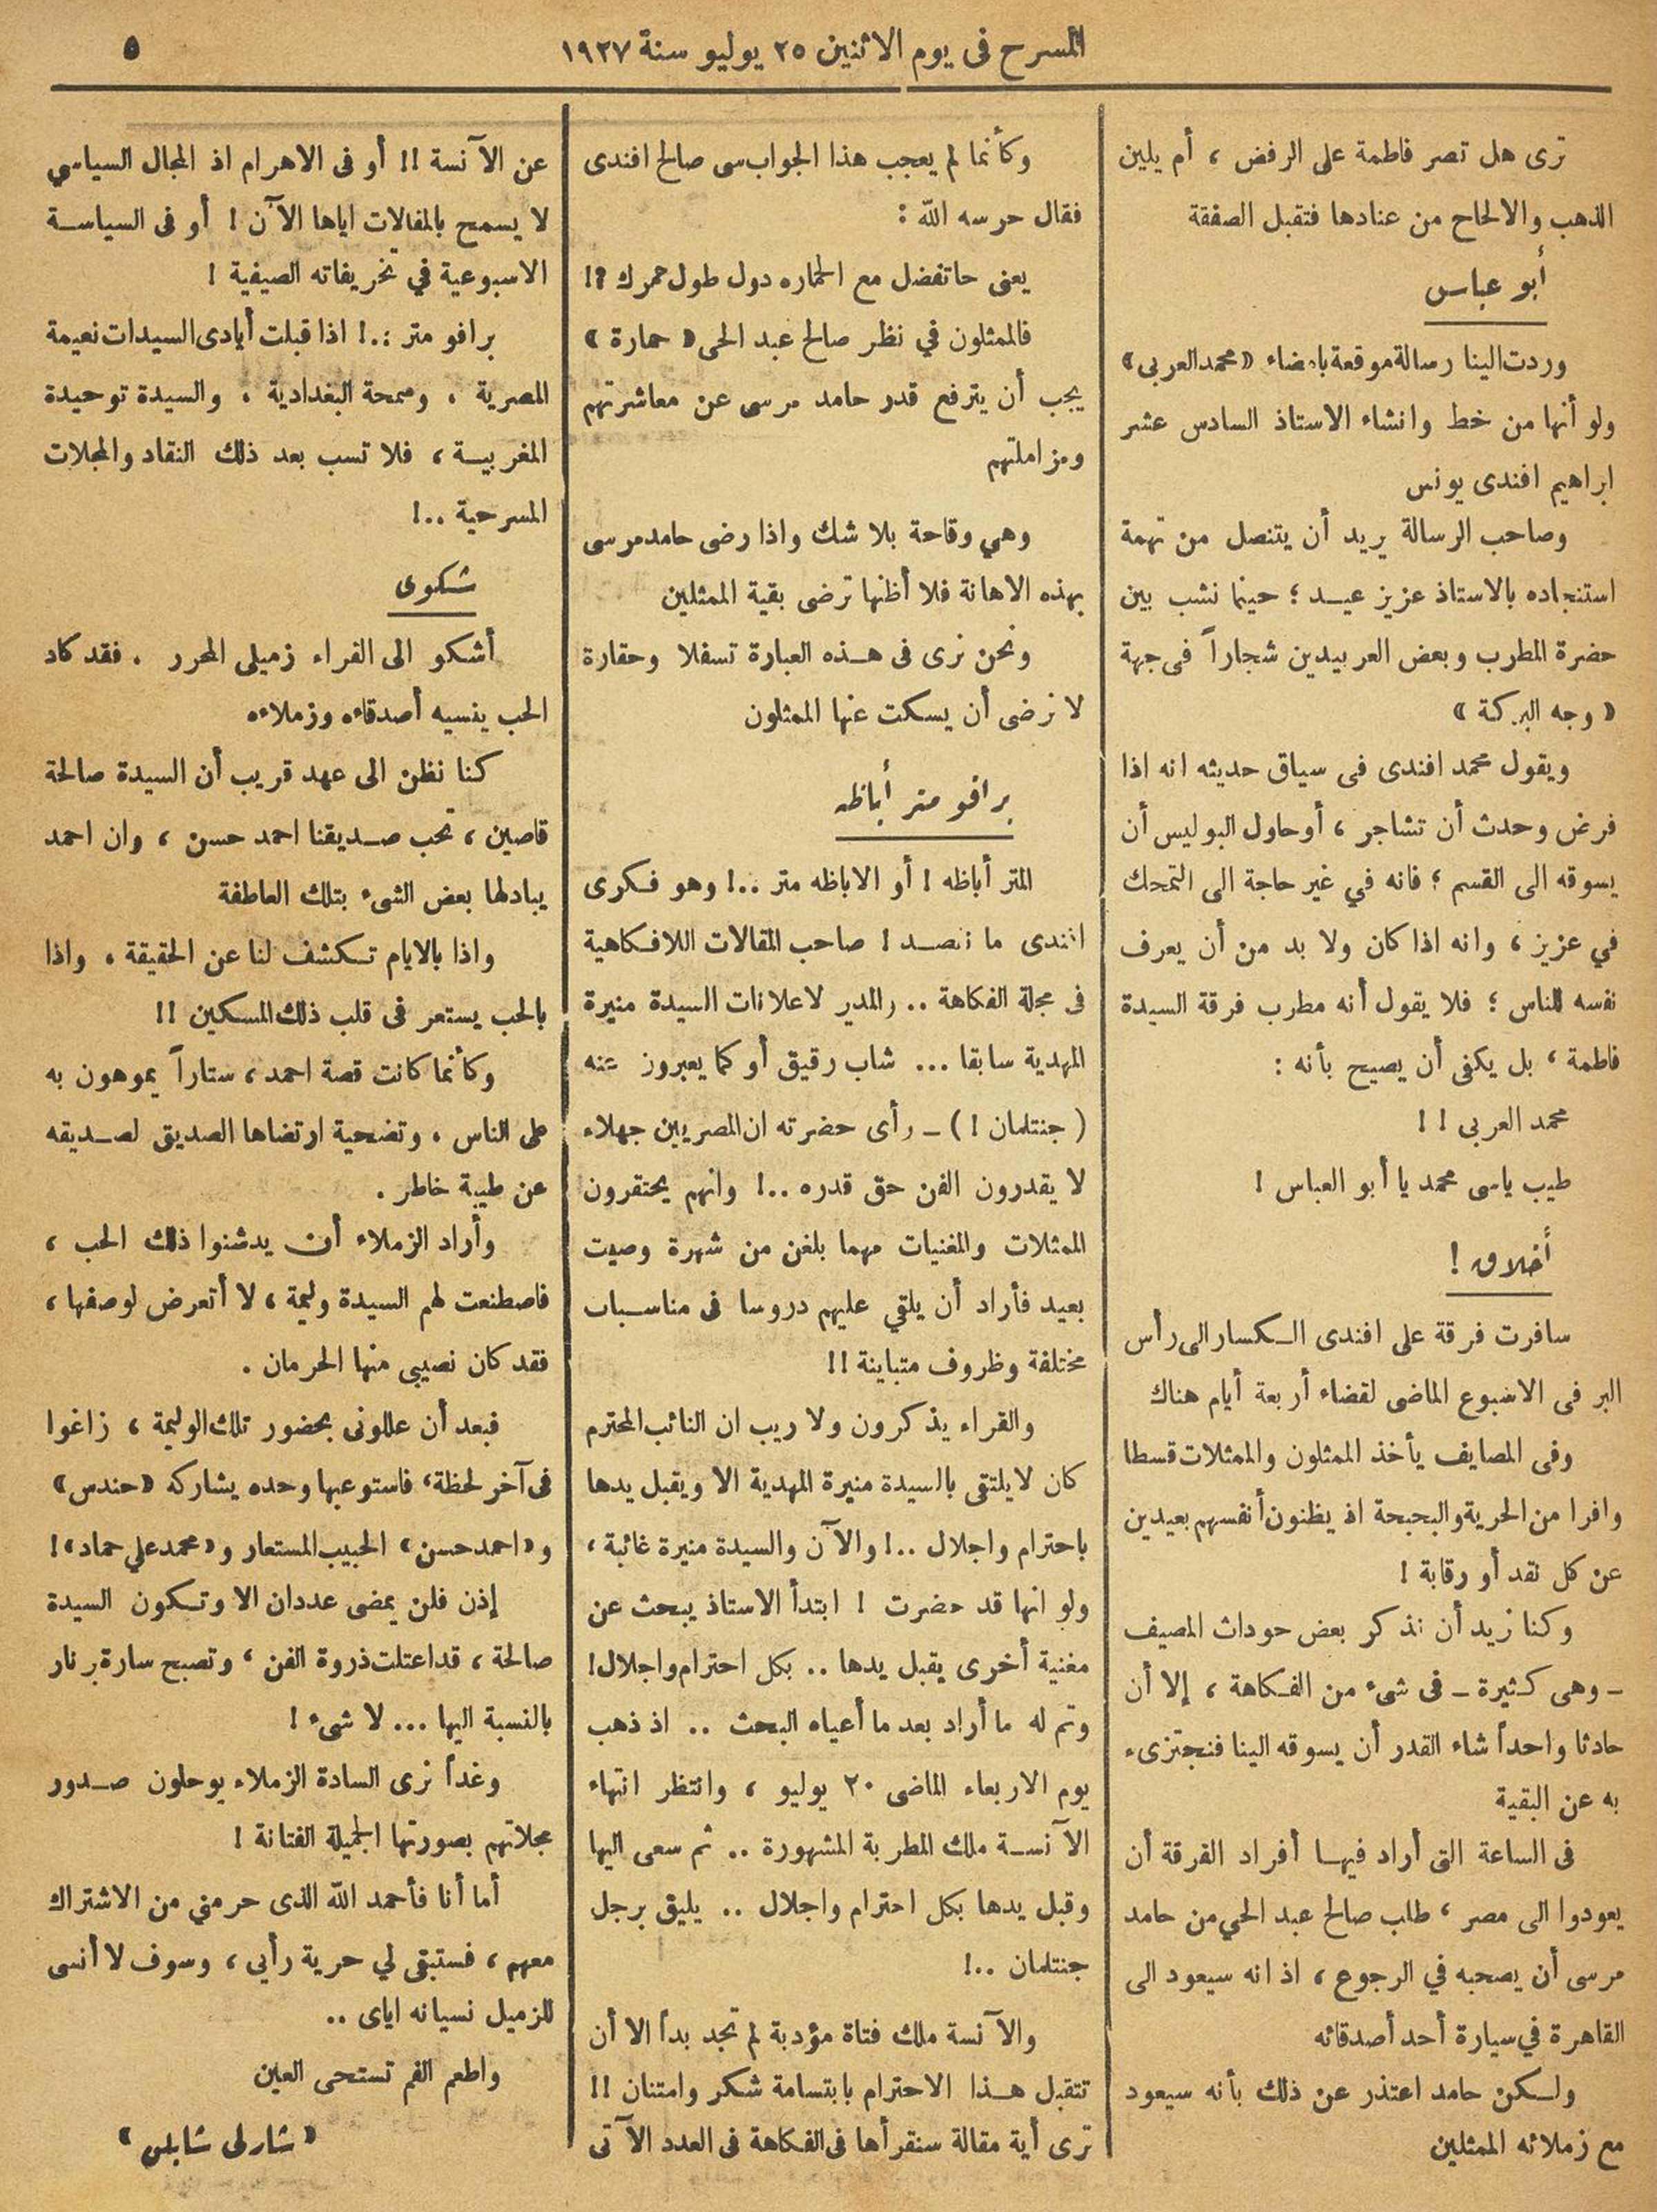 المسرح فى يوم الاثنين ٢٥ يوليو سنة ١٩٢٧
٥
ترى هل تصر فاطمة على الرفض ، أم يلين
الذهب والالحاح من عنادها فتقبل الصفقة
أبو عباس
وردت الينا رسالة موقعة بامضاء «محمد العربى»
ولو أنها من خط وانشاء الاستاذ السادس عشر
ابراهيم افندى يونس
وصاحب الرسالة يريد أن يتنصل من تهمة
استنجاده بالاستاذ عزيز عيد ؛ حينما نشب بين
حضرة المطرب وبعض العربيدين شجاراً فى جهة
« وجه البركة »
ويقول محمد افندى فى سياق حديثه انه اذا
فرض وحدث أن تشاجر ، أو حاول البوليس أن
يسوقه الى القسم ؛ فانه في غير حاجة الى التمحك
في عزيز ، وانه اذا كان ولا بد من أن يعرف
نفسه للناس ؛ فلا يقول أنه مطرب فرقة السيدة
فاطمة ، بل يكفى أن يصيح بأنه :
محمد العربى ! !
طيب ياسى محمد يا أبو العباس !
أخلاق !
سافرت فرقة على افندى الكسار الى رأس
البر فى الاسبوع الماضى لقضاء أربعة أيام هناك
وفى المصايف يأخذ الممثلون والممثلات قسطا
وافرا من الحرية والبحبحة اذ يظنون أنفسهم بعيدين
عن كل نقد أو رقابة !
وكنا نريد أن نذكر بعض حودات المصيف
ـ وهى كثيرة ـ فى شىء من الفكاهة ، إلا أن
حادثا واحداً شاء القدر أن يسوقه الينا فنجتزىء
به عن البقية
فى الساعة التى أراد فيها أفراد الفرقة أن
يعودوا الى مصر ، طلب صالح عبد الحي من حامد
مرسى أن يصحبه في الرجوع ، اذ انه سيعود الى
القاهرة في سيارة أحد أصدقائه
ولكن حامد اعتذر عن ذلك بأنه سيعود
مع زملائه الممثلين
وكأنما لم يعجب هذا الجواب سى صالح افندى
فقال حرسه الله :
يعنى حاتفضل مع الحماره دول طول عمرك ؟!
فالممثلون في نظر صالح عبد الحى « حمارة »
يجب أن يترفع قدر حامد مرسى عن معاشرتهم
ومزاملتهم
وهي وقاحة بلا شك واذا رضى حامد مرسى
بهذه الاهانة فلا أظنها ترضى بقية الممثلين
ونحن نرى فى هذه العبارة تسفلا وحقارة
لا نرضى أن يسكت عنها الممثلون
برافو متر أباظه
المتر أباظه ! أو الاباظه متر ..! وهو فكرى
افندى ما نقصد ! صاحب المقالات اللافكاهية
فى مجلة الفكاهة .. والمدير لاعلانات السيدة منيرة
المهدية سابقا ... شاب رقيق أو كما يعبرون عنه
( جنتلمان ! ) ـ رأى حضرته ان المصريين جهلاء
لا يقدرون الفن حق قدره ..! وانهم يحتقرون
الممثلات والمغنيات مهما بلغن من شهرة وصيت
بعيد فأراد أن يلقي عليهم دروسا فى مناسبات
مختلفة وظروف متباينة !!
والقراء يذكرون ولا ريب ان النائب المحترم
كان لا يلتقى بالسيدة منيرة المهدية الا ويقبل يدها
باحترام واجلال ..! والآن والسيدة منيرة غائبة ،
ولو انها قد حضرت ! ابتدأ الاستاذ يبحث عن
مغنية أخرى يقبل يدها .. بكل احترام واجلال !
وتم له ما أراد بعد ما أعياه البحث .. اذ ذهب
يوم الاربعاء الماضى ٢٠ يوليو ، وانتظر انتهاء
الآنسة ملك المطربة المشهورة .. ثم سعى اليها
وقبل يدها بكل احترام واجلال .. يليق برجل
جنتلمان ..!
والآنسة ملك فتاة مؤدبة لم تجد بداً الا أن
تتقبل هذا الاحترام بابتسامة شكر وامتنان !!
ترى أية مقالة سنقرأها فى الفكاهة فى العدد الآتى
عن الآنسة !! أو فى الاهرام اذ المجال السياسي
لا يسمح بالمقالات اياها الآن ! أو فى السياسة
الاسبوعية في تخريفاته الصيفية !
برافو متر ..! اذا قبلت أيادى السيدات نعيمة
المصرية ، وسمحة البغدادية ، والسيدة توحيدة
المغربية ، فلا تسب بعد ذلك النقاد والمجلات
المسرحية ..!
شكوى
أشكو الى القراء زميلى المحرر . فقد كاد
الحب ينسيه أصدقاءه وزملاءه
كنا نظن الى عهد قريب أن السيدة صالحة
قاصين ، تحب صديقنا احمد حسن ، وان احمد
يبادلها بعض الشىء بتلك العاطفة
واذا بالايام تكشف لنا عن الحقيقة ، واذا
بالحب يستعر فى قلب ذلك المسكين !!
وكأنما كانت قصة احمد ، ستاراً يموهون به
على الناس ، وتضحية ارتضاها الصديق لصديقه
عن طيبة خاطر .
وأراد الزملاء أن يدشنوا ذلك الحب ،
فاصطنعت لهم السيدة وليمة ، لا أتعرض لوصفها ،
فقد كان نصيبى منها الحرمان .
فبعد أن عللونى بحضور تلك الوليمة ، زاغوا
فى آخر لحظة ، فاستوعبها وحده يشاركه «حندس»
و«احمد حسن» الحبيب المستعار و«محمد علي حماد» !
إذن فلن يمضى عددان الا وتكون السيدة
صالحة ، قد اعتلت ذروة الفن ، وتصبح سارة برنار
بالنسبة اليها ... لا شىء !
وغداً نرى السادة الزملاء يوحلون صدور
مجلاتهم بصورتها الجميلة الفتانة !
أما أنا فأحمد الله الذى حرمني من الاشتراك
معهم ، فستبقى لي حرية رأيى ، وسوف لا أنسى
للزميل نسيانه اياى ..
واطعم الفم تستحى العين
« شارلى شابلن »